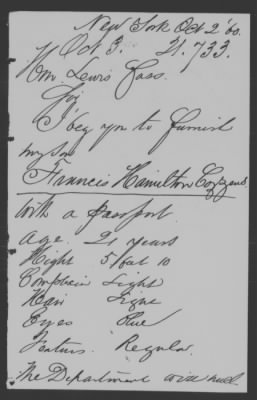 New York Oct 2 '60.
Oct 3. 21.733.
Hon Lewis Cass.
Sir
I beg you to furnish
my son
Francis Hamilton Cozzens
With a Passport
Age. 21 years
Hight 5 feet 10
Complexion Light
Hair Light
Eyes Blue
Features. Regular.
The Department will